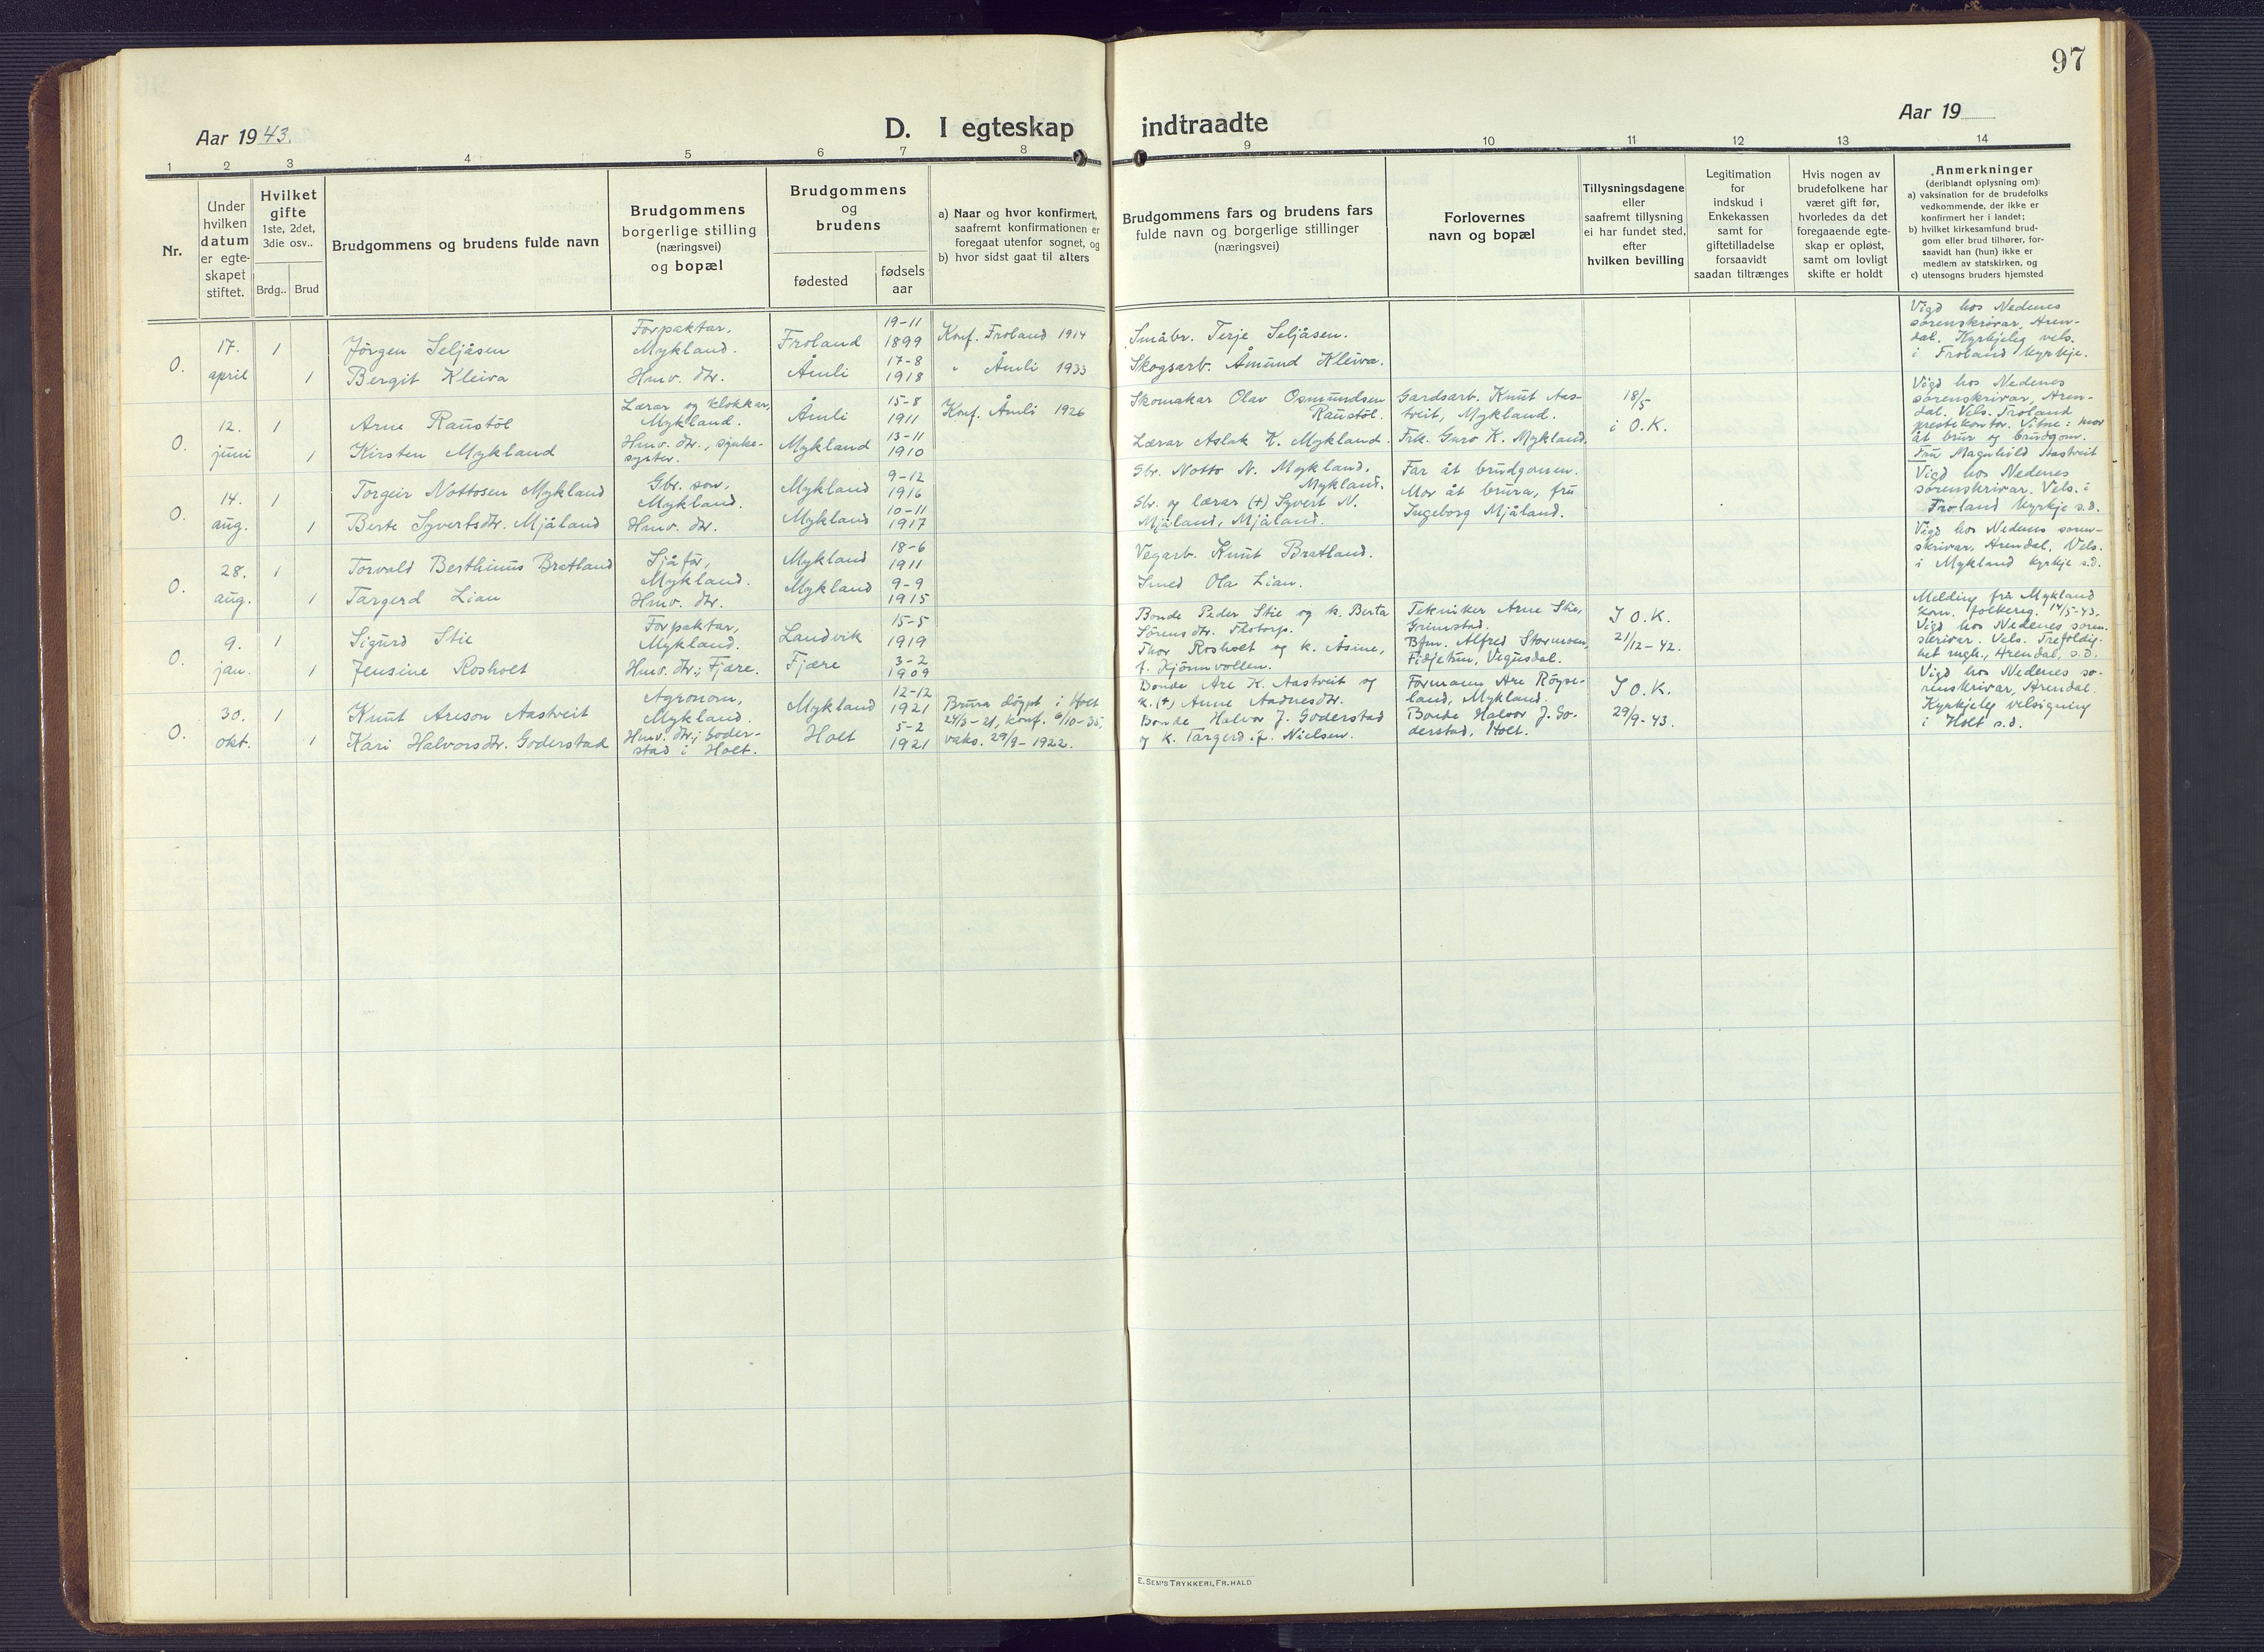 97
Aar 1943.
D. I egteskap indtraadte
Aar 19
1 2 3 4 5 6 7 8 9 10 11 12 13 14
Nr.
Under
hvilken
datum
er egte-
skapet
stiftet.
Hvilket
gifte
1ste, 2det,
3die osv..
Brdg.. Brud
Brudgommens og brudens fulde navn
Brudgommens
borgerlige stilling
(næringsvei)
og bopæl
Brudgommens
og
brudens
fødested
fødsels
aar
a) Naar og hvor konfirmert,
saafremt konfirmationen er
foregaat utenfor sognet, og
b) hvor sidst gaat til alters
Brudgommens fars og brudens fars
fulde navn og borgerlige stillinger
(næringsvei)
Forlovernes
navn og bopæl
Tillysningsdagene
eller
saafremt tillysning
ei har fundet sted,
efter
hvilken bevilling
Legitimation
for
indskud i
Enkekassen
samt for
giftetilladelse
forsaavidt
saadan tiltrænges
Hvis nogen av
brudefolkene har
været gift før,
hvorledes da det
foregaaende egte-
skap er opløst,
samt om lovligt
skifte er holdt
Anmerkninger
(deriblandt oplysning om):
a) vaksination for de brudefolks
vedkommende, der ikke er
konfirmert her i landet;
b) hvilket kirkesamfund brud-
gom eller brud tilhører, for-
saavidt han (hun) ikke er
medlem av statskirken, og
c) utensogns bruders hjemsted
0.
17.
april
1
1
Jörgen Seljåsen
Bergit Kleiva
Forpaktar,
Mykland.
Hmv. dtr.
Froland
Åmli
19-11
1899
17-8
1918
Konf. Froland 1914
" Åmli 1933
Småbr. Terje Seljåsen.
Skogsarb. Åmund Kleiva.
Vigd hos Nedenes
sorenskrivar, Aren-
dal. Kyrkjeleg vels.
i Froland kyrkje.
0.
12.
juni
1
1
Arne Raustöl
Kirsten Mykland
Lærar og klokkar,
Mykland.
Hmv. dtr., sjuke-
syster.
Åmli
Mykland
15-8
1911
13-11
1910
Konf. Åmli 1926
Skomakar Olav Osmundsen
Raustöl.
Lærar Aslak K. Mykland.
Gardsarb. Knut Aas-
tveit, Mykland.
Frk. Guro K. Mykland.
18/5
i O.K.
Vigd hos Nedenes
sorenskrivar, Aren-
dal. Vels. Froland
prestekontor. Vitne: mor
åt brur og brudgom.
Fru Magnhild Aastveit
0.
14.
aug.
1
1
Torgeir Nottosen Mykland
Berte Syvertsdtr. Mjåland
Gbr. son,
Mykland.
Hmv. dtr.
Mykland
Mykland
9-12
1916
10-11
1917
Gbr. Notto N. Mykland,
Mykland.
Gbr. og lærar (+) Syvert N.
Mjåland, Mjåland.
Far åt brudgomen.
Mor åt brura, fru
Ingeborg Mjåland.
Vigd hos Nedenes
sorenskrivar. Vels. i
Froland kyrkje s.d.
0.
28.
aug.
1
1
Torvald Berthinus Bratland
Targerd Lian
Sjåfør,
Mykland.
Hmv. dtr.
Mykland
Mykland
18-6
1911
9-9
1915
Vegarb. Knut Bratland.
Smed Ola Lian.
Vigd hos Nedenes soren-
skrivar, Arendal. Vels.
i Mykland kyrkje s.d.
0.
9.
jan.
1
1
Sigurd Stie
Jensine Rosholt
Forpaktar,
Mykland.
Hmv. dtr.; Fjære.
Landvik
Fjære
15-5
1919
3-2
1909
Bonde Peder Stie og k. Berta
Sørensdtr. Thorp.
Thor Rosholt og k. Åsine,
f. Kjönnvollen.
Tekniker Arne Stie,
Grimstad.
Bfm. Alfred Stormoen,
Fidjetun, Vegusdal.
I O.K.
21/12-42.
Melding frå Mykland
kom. folkereg. 14/5-43.
Vigd hos Nedenes soren-
skrivar. Vels. Trefoldig-
het meh., Arendal, s.d.
0.
30.
okt.
1
1
Knut Areson Aastveit
Kari Halvorsdtr. Goderstad
Agronom,
Mykland.
Hmv. dtr.; Goder-
stad i Holt.
Mykland
Holt
12-12
1921
5-2
1921
Brura döypt i Holt
24/3-21, konf. 6/10-35,
vaks. 29/9-1922.
Bonde Are K. Aastveit og
k. (+) Anne Aadnesdtr.
Bonde Halvor J. Goderstad
og k. Targerd, f. Nielsen.
Formann Are Röyse-
land, Mykland.
Bonde Halvor J. Go-
derstad, Holt.
I O.K.
29/9-43.
Vigd hos Nedenes so-
renskrivar, Arendal.
Kyrkjeleg velsigning
i Holt s.d.
E. SEM'S TRYKKERI, FR.HALD